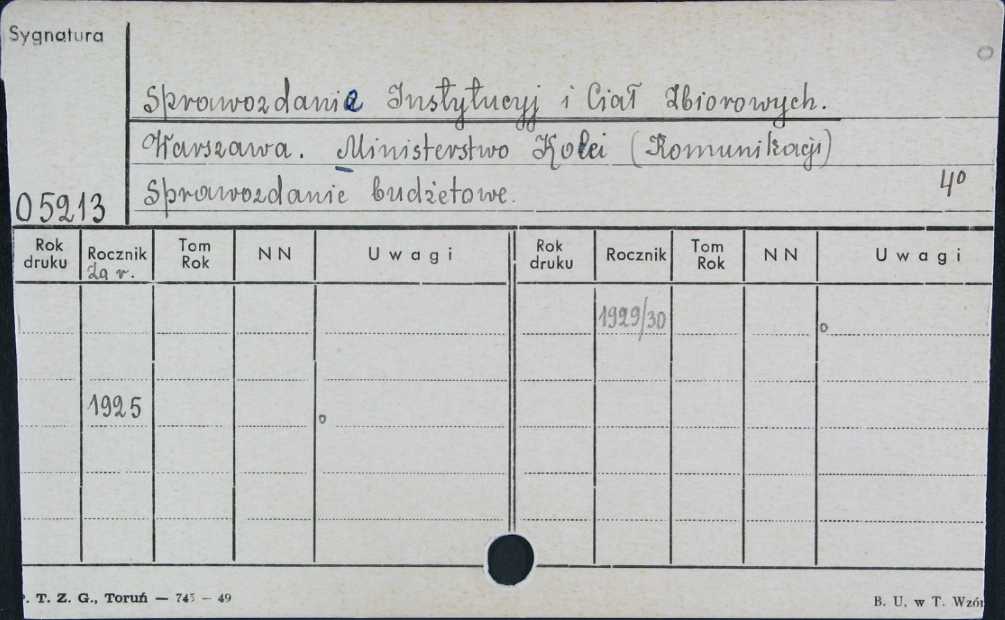 Sygnatura
Sprawozdanie Instytucyj i Ciał Zbiorowych.
Warszawa. Ministerstwo Kolei (Komunikacji)
Sprawozdanie budżetowe. 4°
05213
Rok druku Rocznik Tom Rok NN Uwagi Rok druku Rocznik Tom Rok NN Uwagi
za r.
1929/30 o
1925 o
. T. Z. G., Toruń — 745 — 49
B. U. w T. Wzór